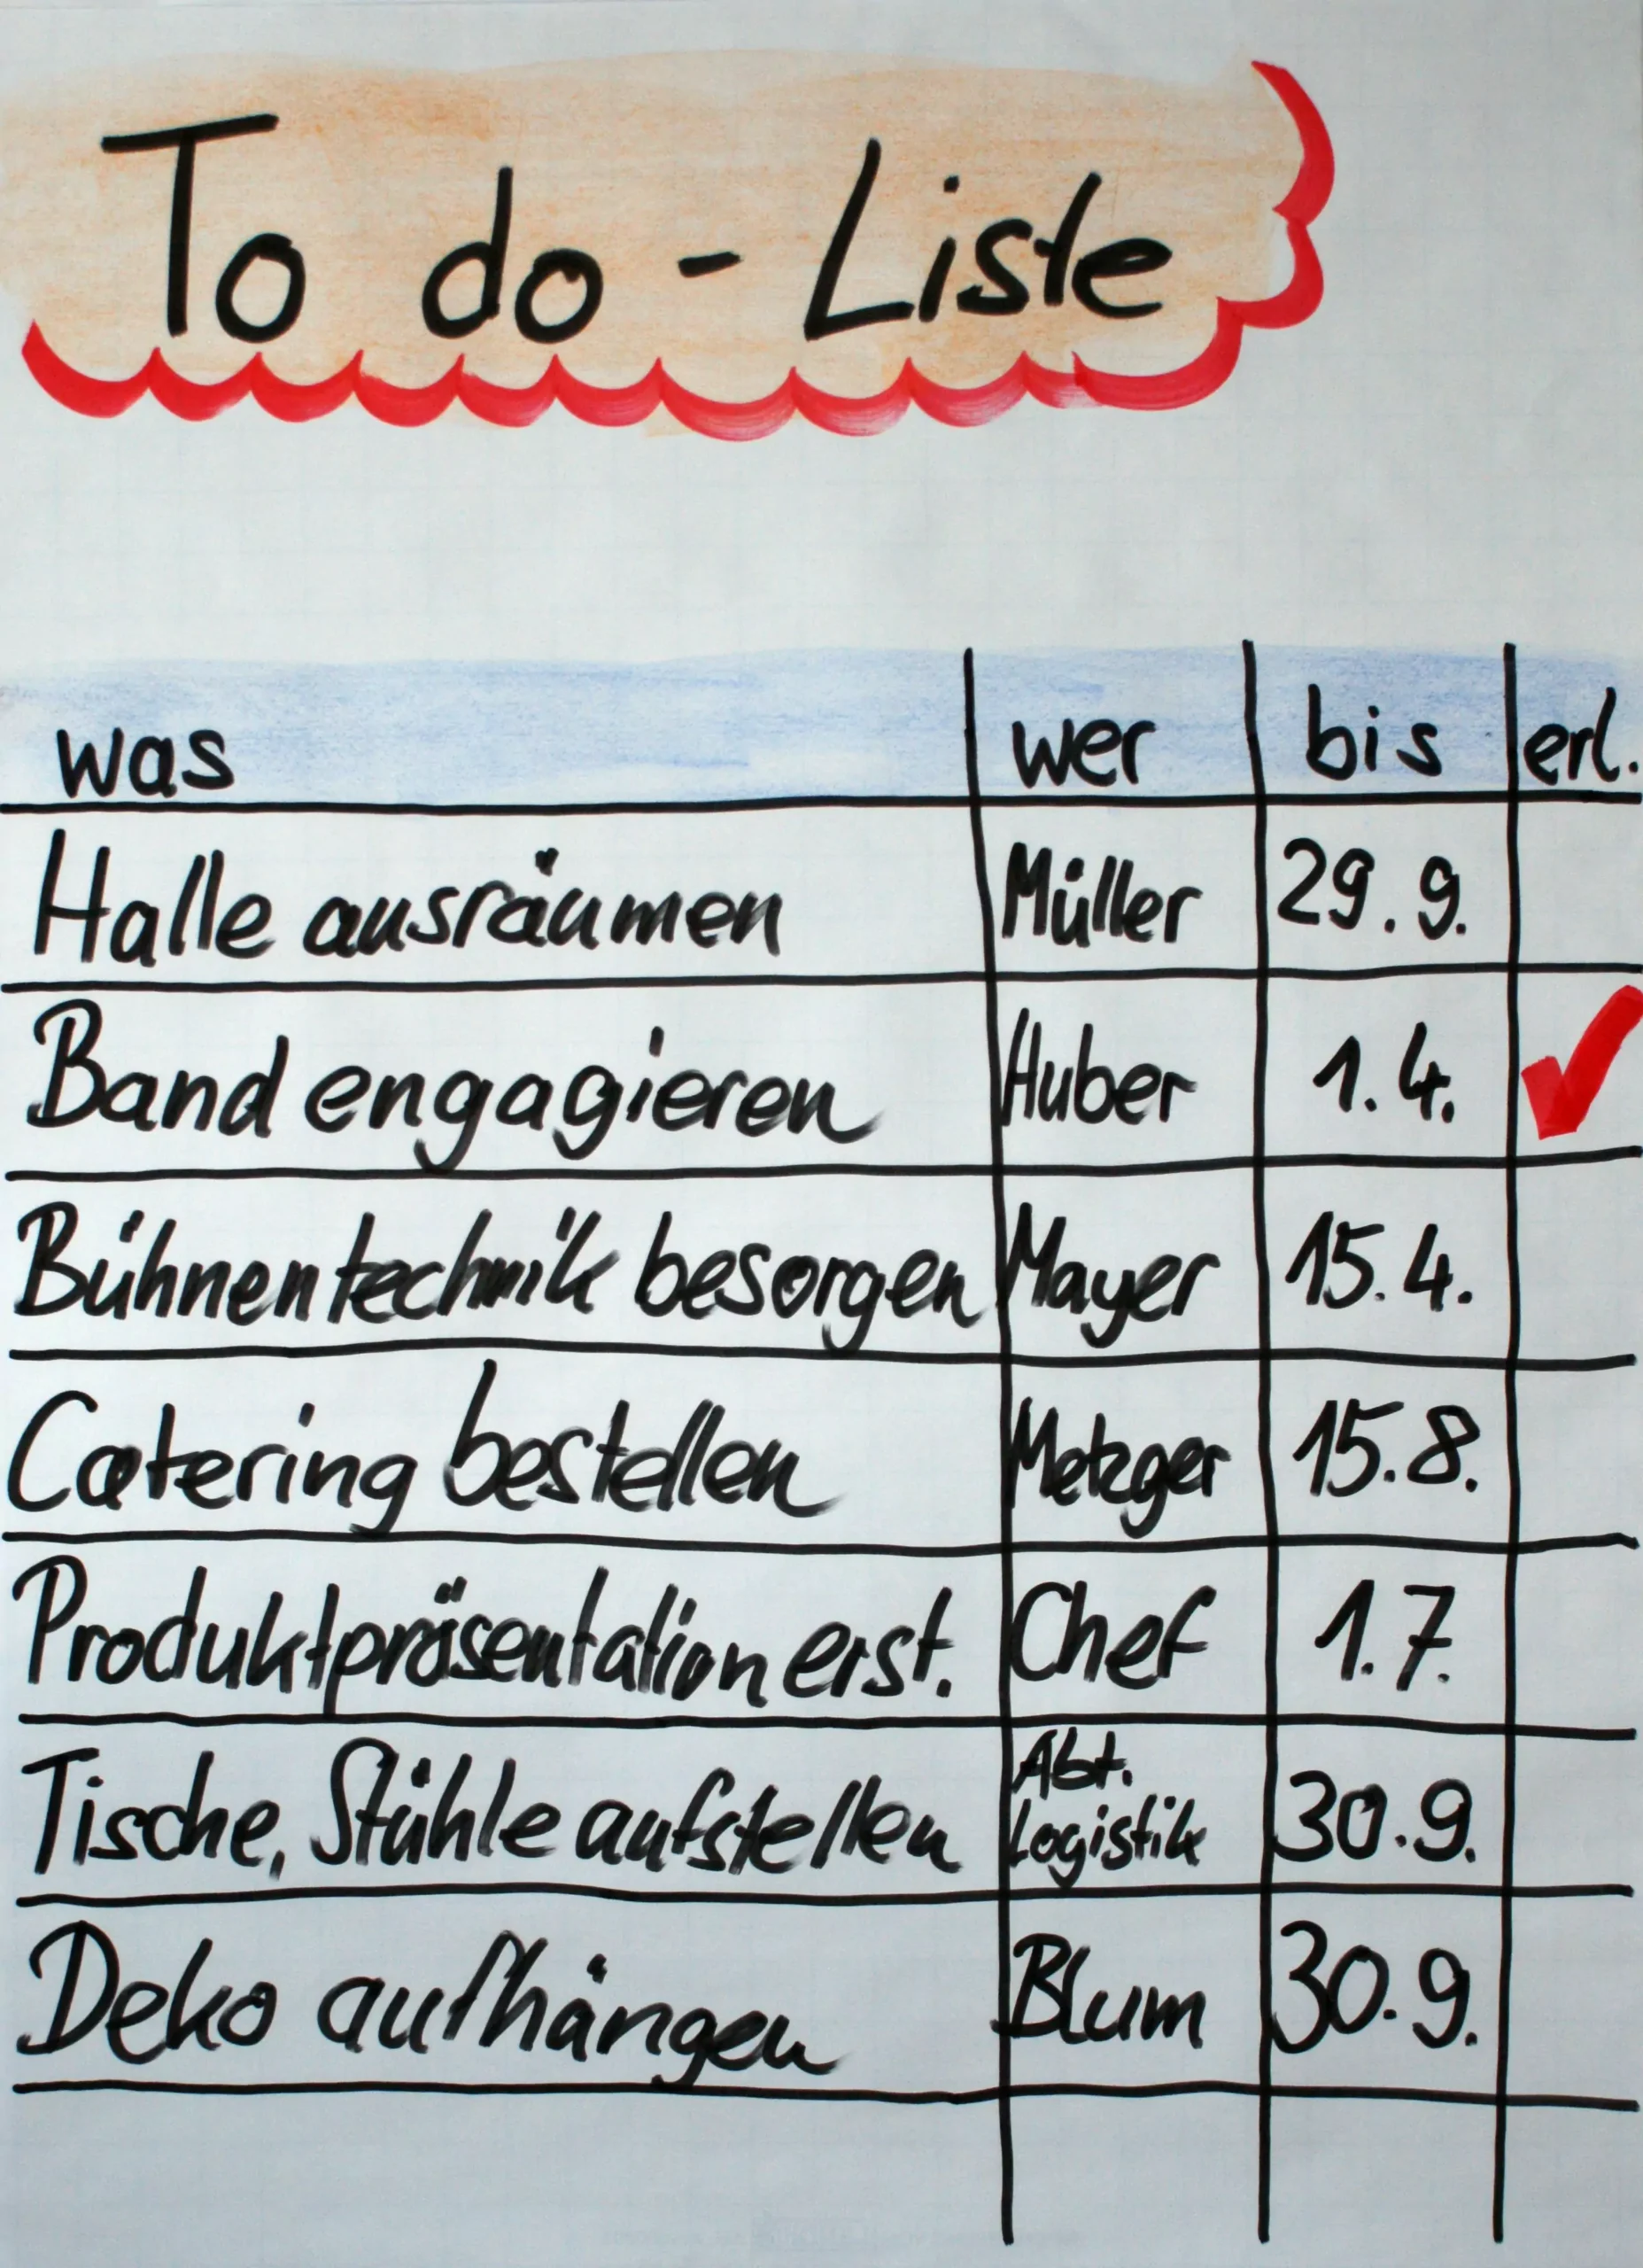 To do - Liste
was wer bis erl.
Halle ausräumen Müller 29.9.
Band engagieren Huber 1.4. ✓
Bühnentechnik besorgen Mayer 15.4.
Catering bestellen Metzger 15.8.
Produktpräsentation erst. Chef 1.7.
Tische, Stühle aufstellen Abt. Logistik 30.9.
Deko aufhängen Blum 30.9.